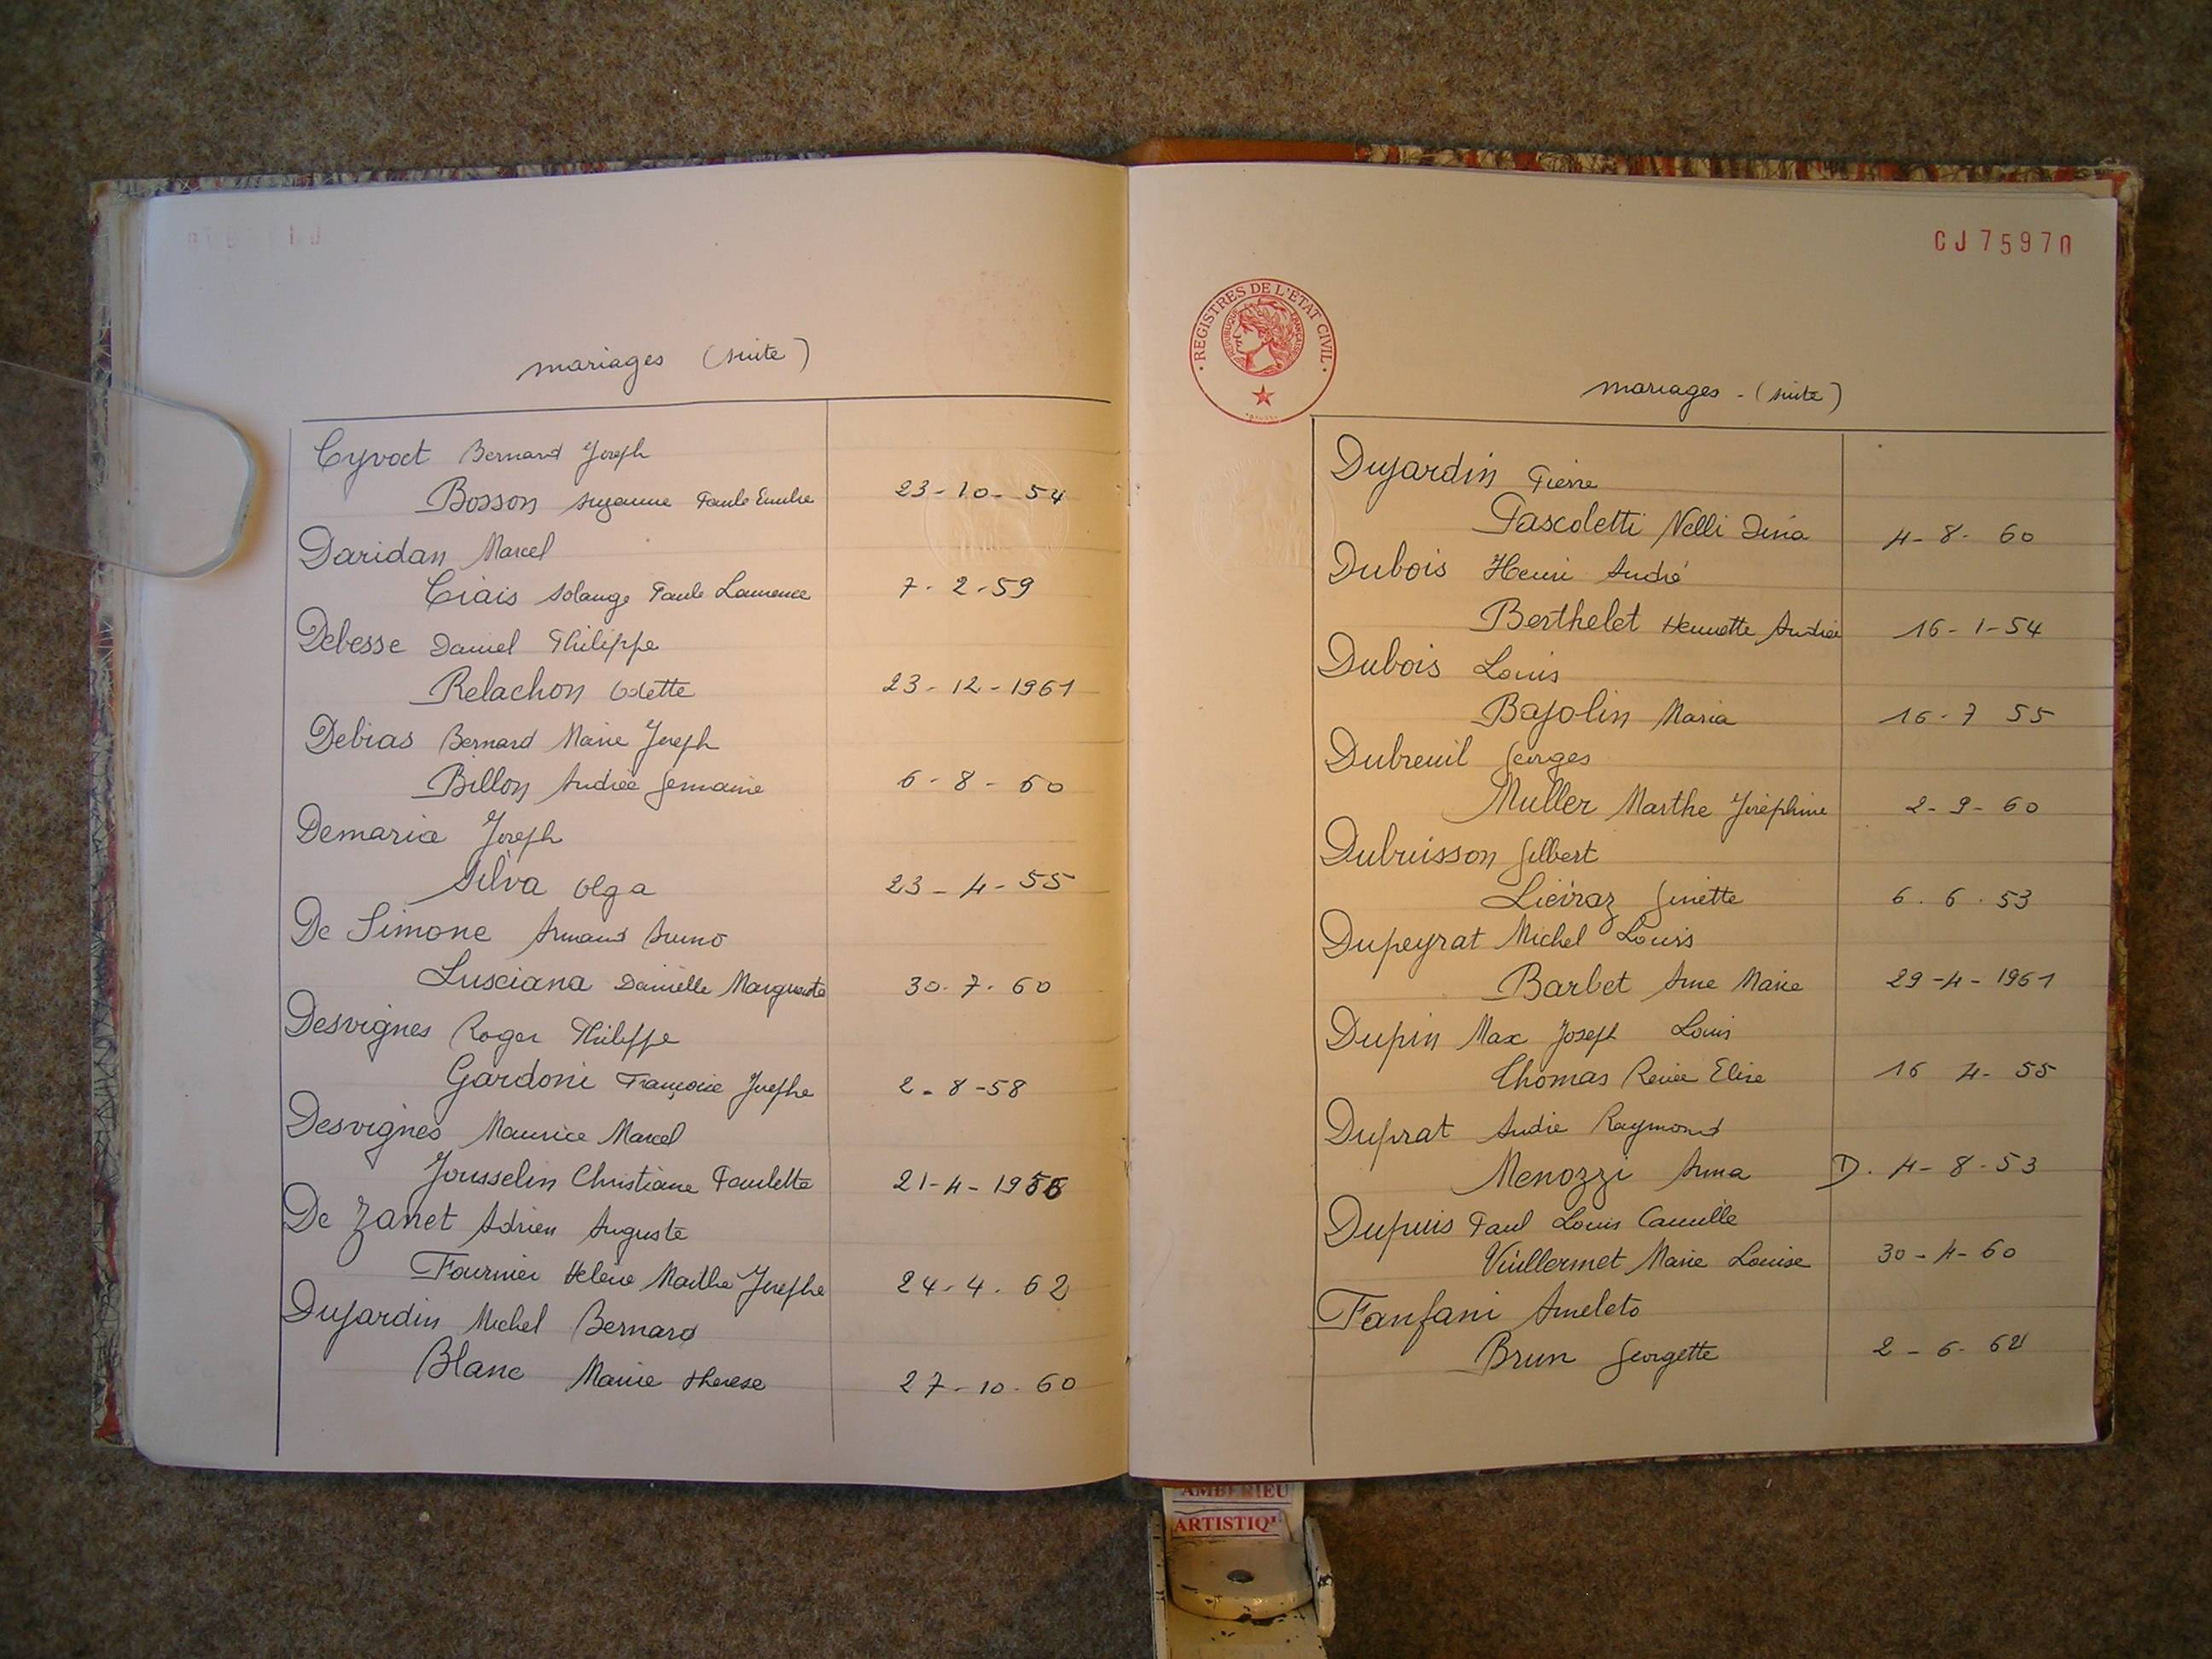 mariages (suite)
Cyvoct Bernard Joseph
Bosson Suzanne Paule Emilie 23-10-54
Daridan Marcel
Ciais Solange Paule Laurence 7-2-59
Debesse Daniel Philippe
Relachon Odette 23-12-1961
Debias Bernard Marie Joseph
Billon Andrée Germaine 6-8-60
Demaria Joseph
Silva Olga 23-4-55
De Simone Armand Bruno
Lusciana Danielle Marguerite 30-7-60
Desvignes Roger Philippe
Gardoni Françoise Josephe 2-8-58
Desvignes Maurice Marcel
Jousselin Christiane Paulette 21-4-1956
De Zanet Adrien Auguste
Fournier Helène Marthe Josephe 24-4-62
Dujardin Michel Bernard
Blanc Marie Therese 27-10-60
CJ 75970
REGISTRES DE L'ÉTAT CIVIL
REPUBLIQUE FRANÇAISE
mariages - (suite)
Dujardin Pierre
Pascoletti Nelli Dina 4-8-60
Dubois Henri André
Berthelet Henriette Andrée 16-1-54
Dubois Louis
Bajolin Maria 16-7 55
Dubreuil Georges
Muller Marthe Joséphine 2-9-60
Dubuisson Gilbert
Ginette 6.6.53
Dupeyrat Michel Louis
Barbet Anne Marie 29-4-1961
Dupin Max Joseph Louis
Thomas Renée Elise 16 4-55
Duprat André Raymond
Menozzi Anna D. 4-8-53
Dupuis Paul Louis Camille
Vuillermet Marie Louise 30-4-60
Fanfani Ameleto
Brun Georgette 2-6-62
AMBERIEU
ARTISTIQ